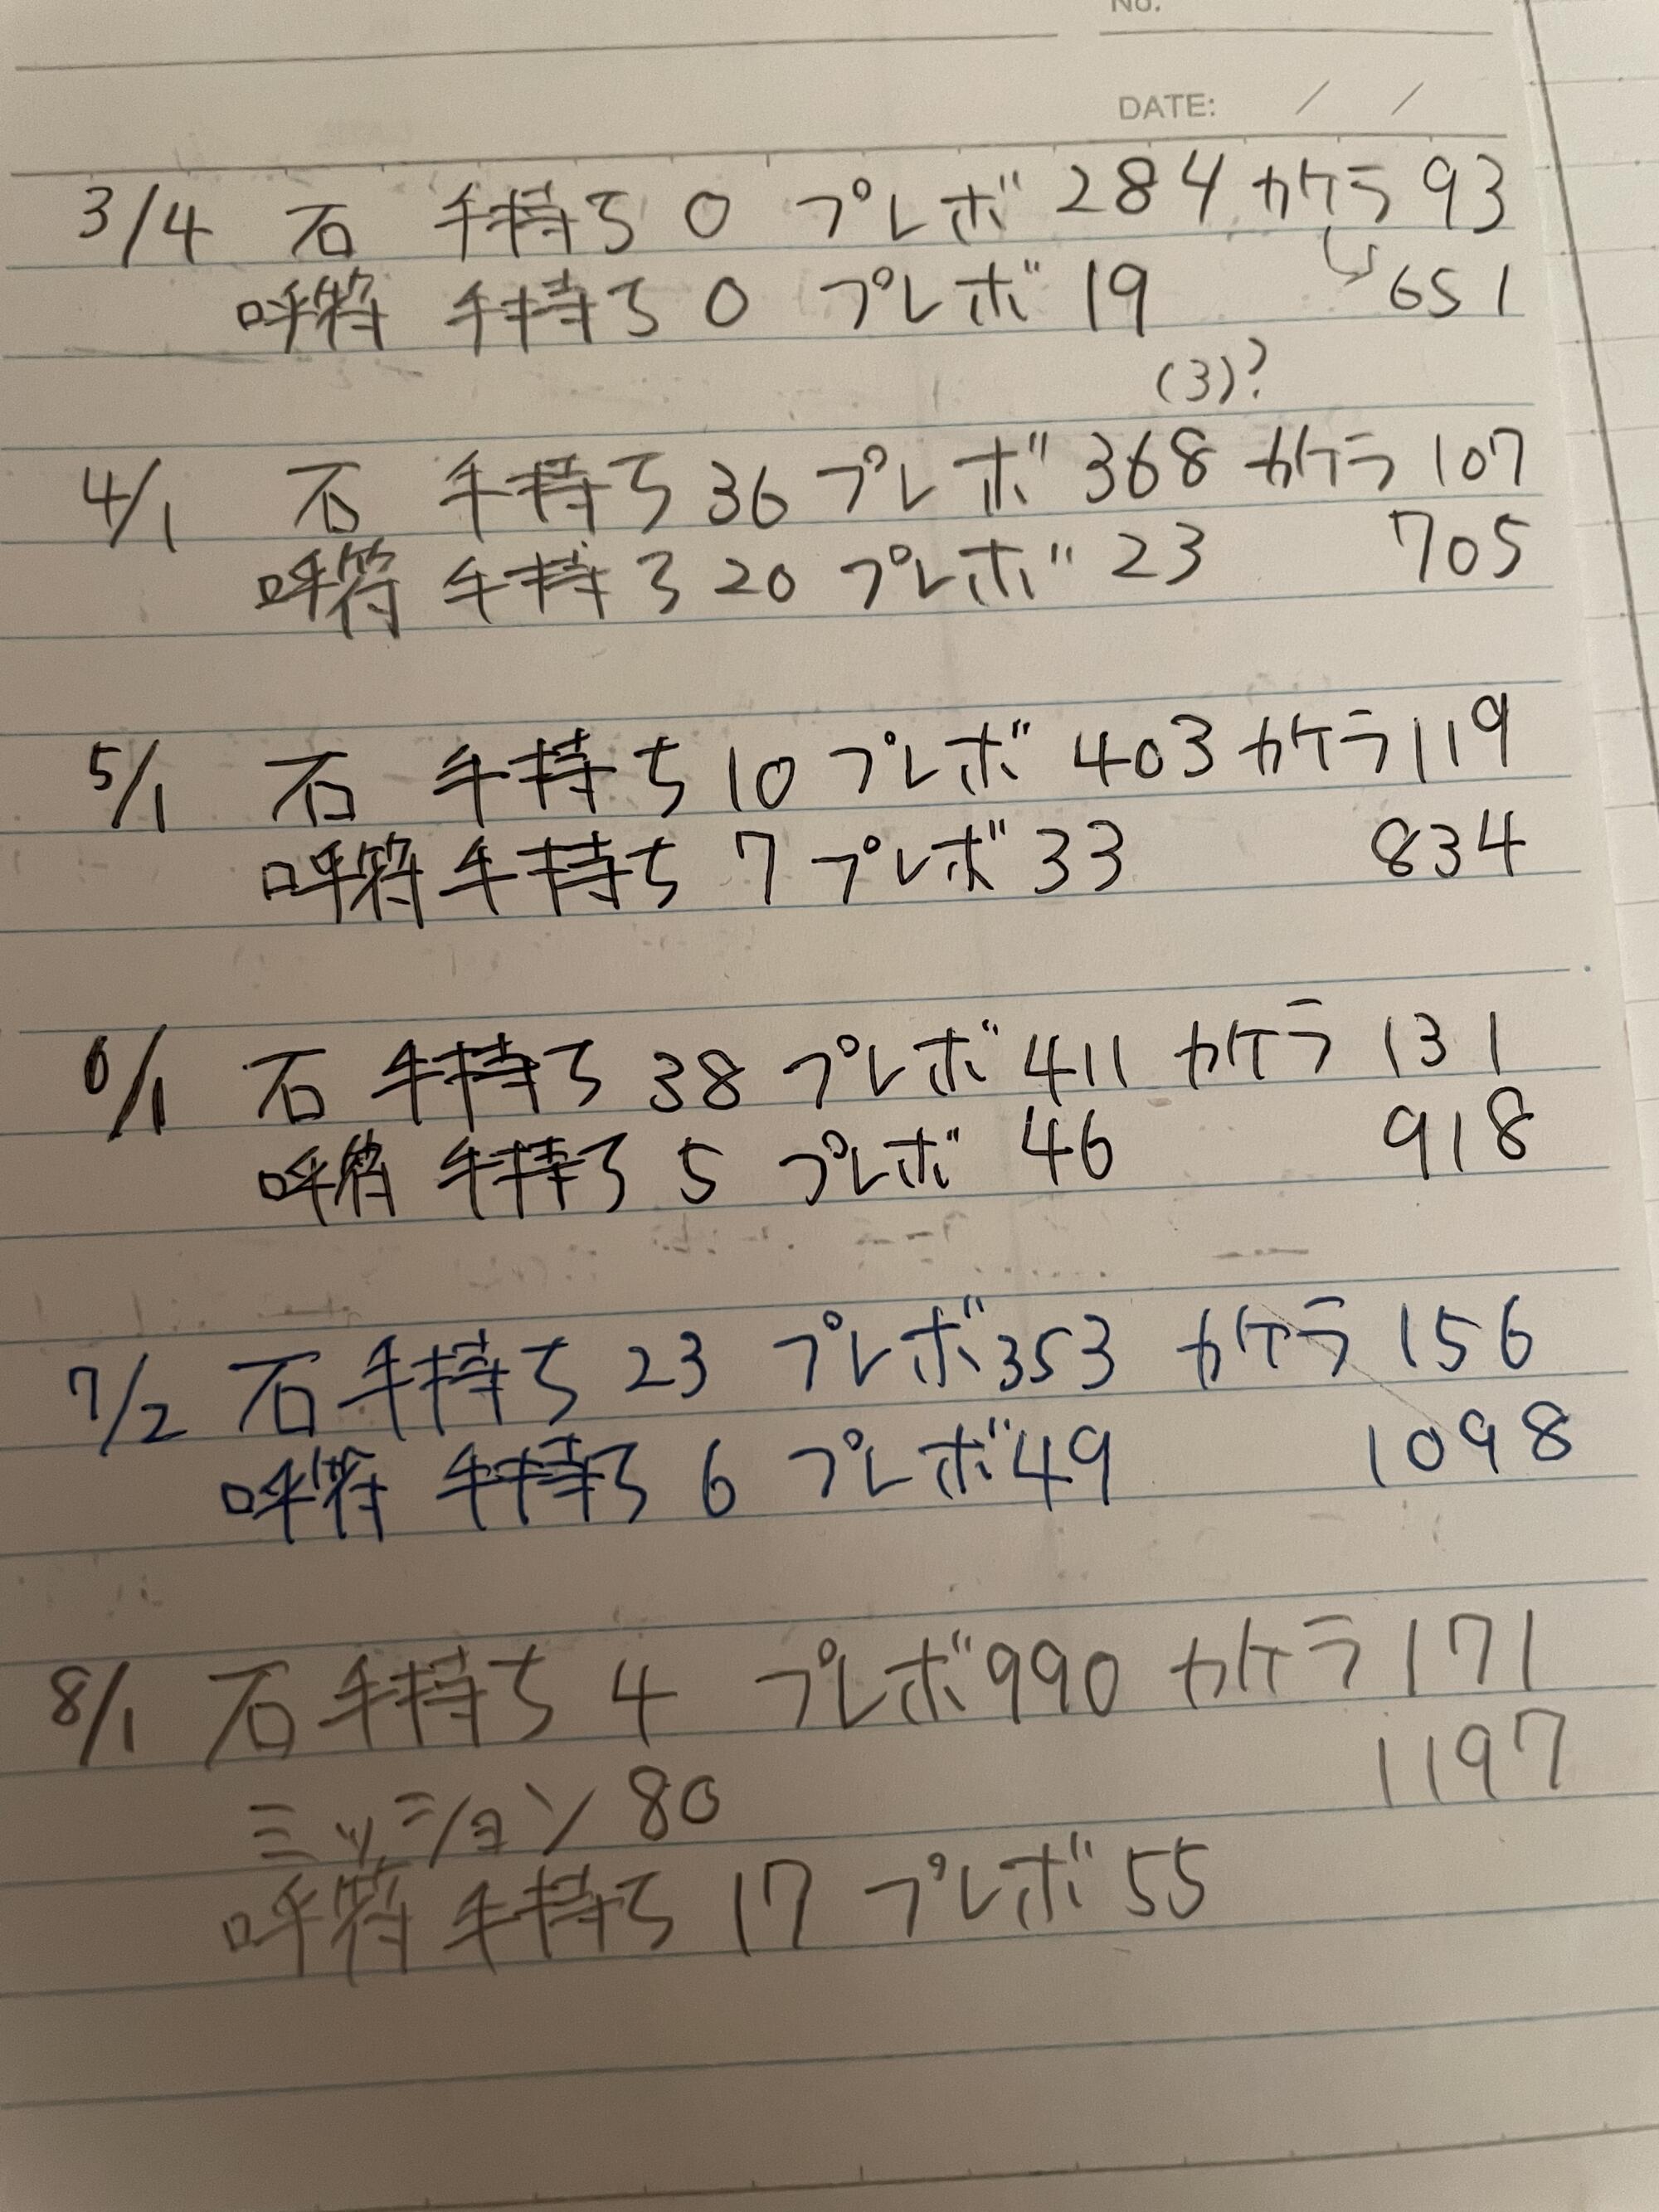 No.
DATE: / /
3/4 石 手持ち 0 プレボ 284 カケラ 93
↳ 651
呼符 手持ち 0 プレボ 19
(3)?
4/1 石 手持ち 36 プレボ 368 カケラ 107
呼符 手持ち 20 プレボ 23 705
5/1 石 手持ち 10 プレボ 403 カケラ 119
呼符 手持ち 7 プレボ 33 834
6/1 石 手持ち 38 プレボ 411 カケラ 131
呼符 手持ち 5 プレボ 46 918
7/2 石 手持ち 23 プレボ 353 カケラ 156
呼符 手持ち 6 プレボ 49 1098
8/1 石 手持ち 4 プレボ 990 カケラ 171
1197
ミッション 80
呼符 手持ち 17 プレボ 55